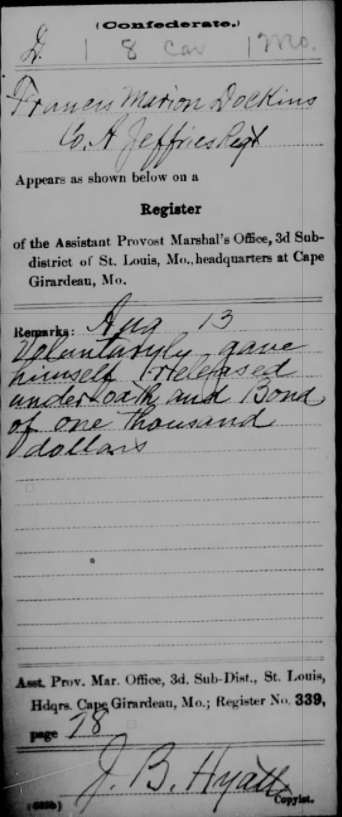 (Confederate.)
D. | 8 Cav | Mo.
Francis Marion Dockins
Co. A Jeffries Regt
Appears as shown below on a
Register
of the Assistant Provost Marshal's Office, 3d Sub-
district of St. Louis, Mo., headquarters at Cape
Girardeau, Mo.
Remarks: Aug 13
Voluntaryly gave
himself released
under oath and Bond
of one thousand
dollars
Asst. Prov. Mar. Office, 3d. Sub-Dist., St. Louis,
Hdqrs. Cape Girardeau, Mo.; Register No. 339,
page 78
J. B. Hyatt
Copyist.